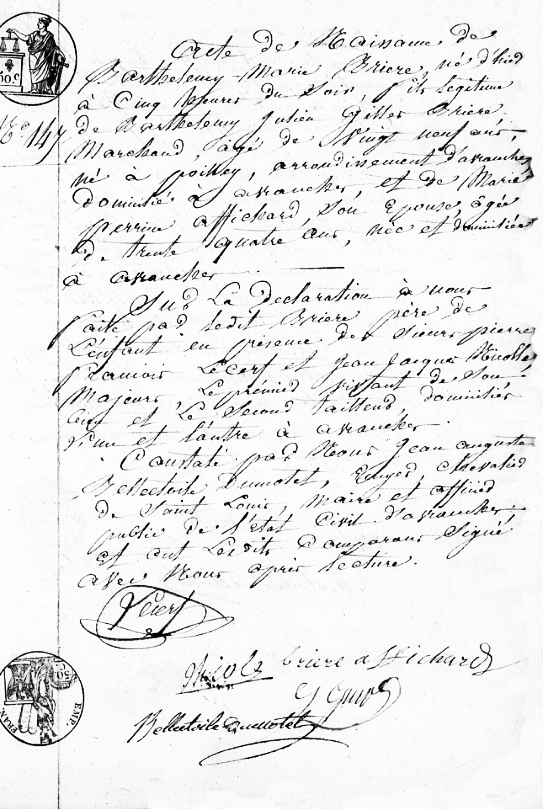 50.C
N° 147
Acte de Naissance de
Barthelemy Marie Briere, né d'hier
à Cinq heures du Soir, fils legitime
de Barthelemy Julien Gilles Briere
Marchand, agé de Vingt neuf ans,
né à poilley, arrondissement d'avranches
domicilié à avranches, et de Marie
perrine affichard, Son Epouse, agée
de trente quatre ans, née et domiciliée
à avranches
Sur La Declaration à nous
faite par ledit Briere père de
L'enfant en présence des Sieurs pierre
francois Lecerf et Jean Jacques Nicolle
Majeurs, Le premier vivant de Son
bien et Le Second tailleur, domiciliés
l'un et l'autre à avranches
Constaté par Nous Jean auguste
Belletoile Dumotet, Ecuyer, chevalier
de Saint Louis, Maire et officier
public de l'Etat Civil d'avranches;
Et ont Lesdits Comparans Signé
avec Nous après lecture.
Lecerf
Nicole briere affichard
Belletoile Dumotet
EMP. FRAN 50.C